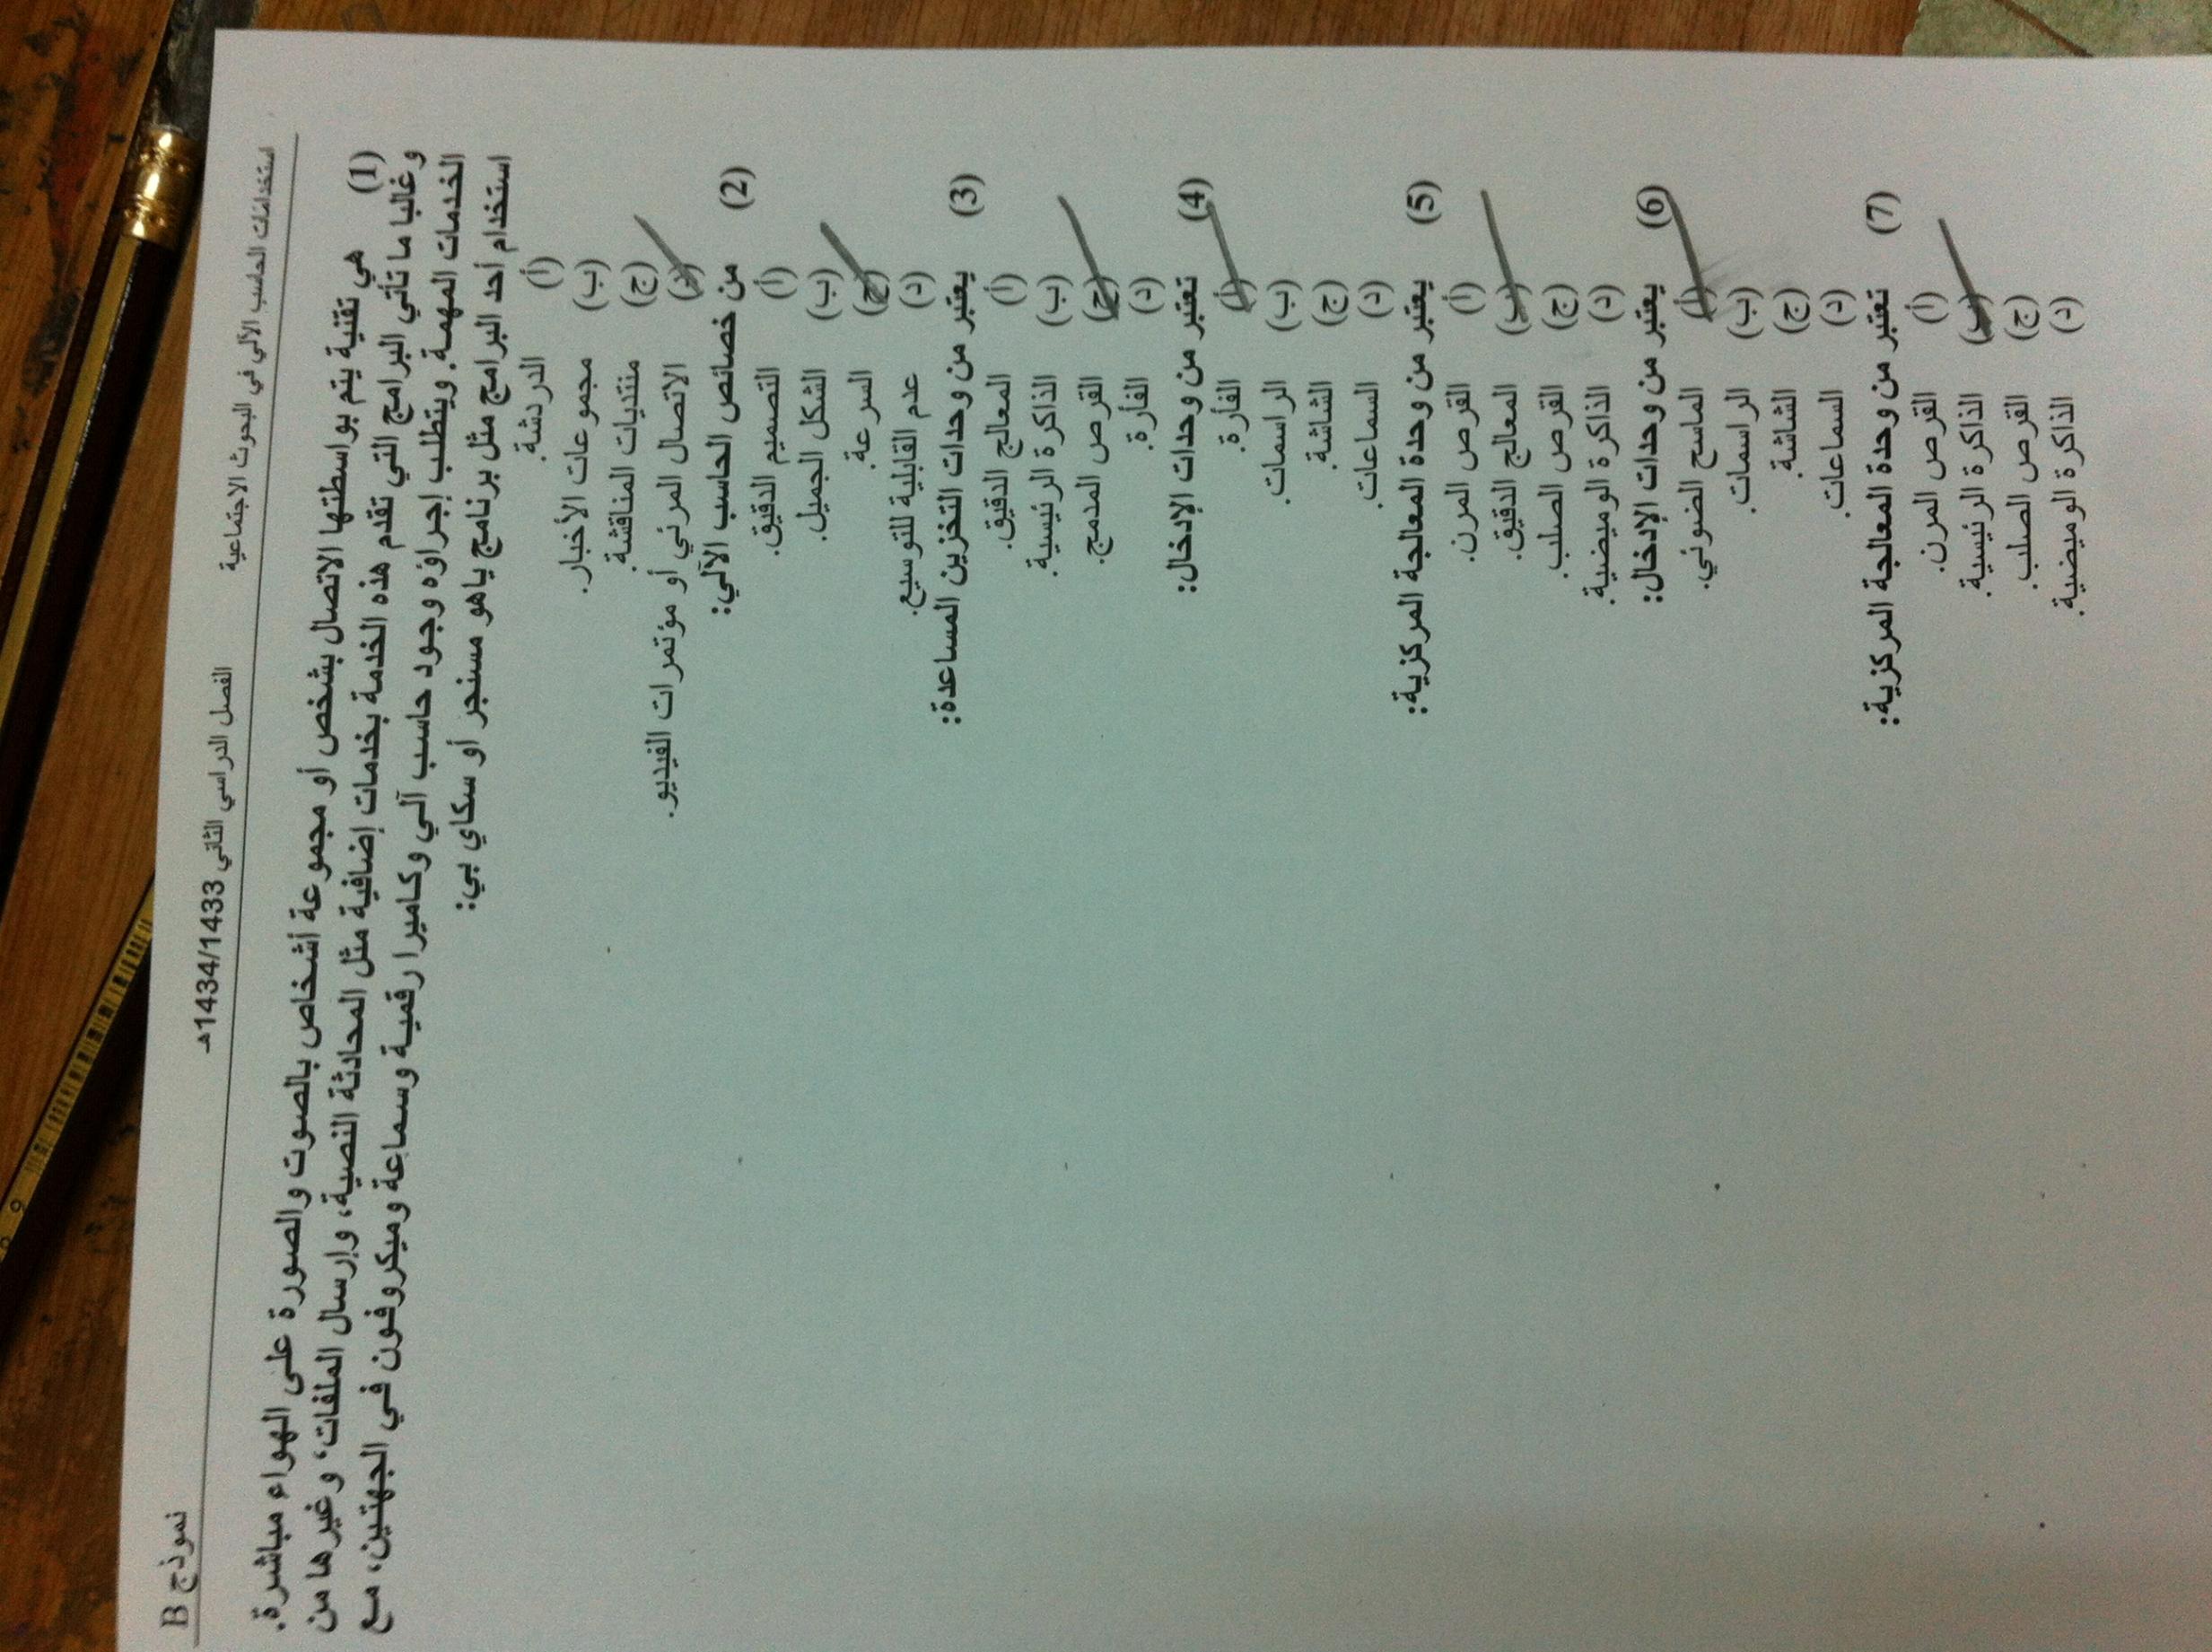 استخدامات الحاسب الآلي في البحوث الاجتماعية الفصل الدراسي الثاني 1434/1433هـ نموذج B
(1) هي تقنية يتم بواسطتها الاتصال بشخص أو مجموعة أشخاص بالصوت والصورة على الهواء مباشرة.
وغالبا ما تأتي البرامج التي تقدم هذه الخدمة بخدمات إضافية مثل المحادثة النصية، وإرسال الملفات، وغيرها من
الخدمات المهمة. ويتطلب إجراؤه وجود حاسب آلي وكاميرا رقمية وسماعة وميكروفون في الجهتين، مع
استخدام أحد البرامج مثل برنامج ياهو مسنجر أو سكاي بي:
(أ) الدردشة.
(ب) مجموعات الأخبار.
(ج) منتديات المناقشة.
(د) الاتصال المرئي أو مؤتمرات الفيديو.
(2) من خصائص الحاسب الآلي:
(أ) التصميم الدقيق.
(ب) الشكل الجميل.
(ج) السرعة.
(د) عدم القابلية للتوسيع.
(3) يعتبر من وحدات التخزين المساعدة:
(أ) المعالج الدقيق.
(ب) الذاكرة الرئيسية.
(ج) القرص المدمج.
(د) الفأرة.
(4) تعتبر من وحدات الإدخال:
(أ) الفأرة.
(ب) الراسمات.
(ج) الشاشة.
(د) السماعات.
(5) يعتبر من وحدة المعالجة المركزية:
(أ) القرص المرن.
(ب) المعالج الدقيق.
(ج) القرص الصلب.
(د) الذاكرة الوميضية.
(6) يعتبر من وحدات الإدخال:
(أ) الماسح الضوئي.
(ب) الراسمات.
(ج) الشاشة.
(د) السماعات.
(7) تعتبر من وحدة المعالجة المركزية:
(أ) القرص المرن.
(ب) الذاكرة الرئيسية.
(ج) القرص الصلب.
(د) الذاكرة الوميضية.